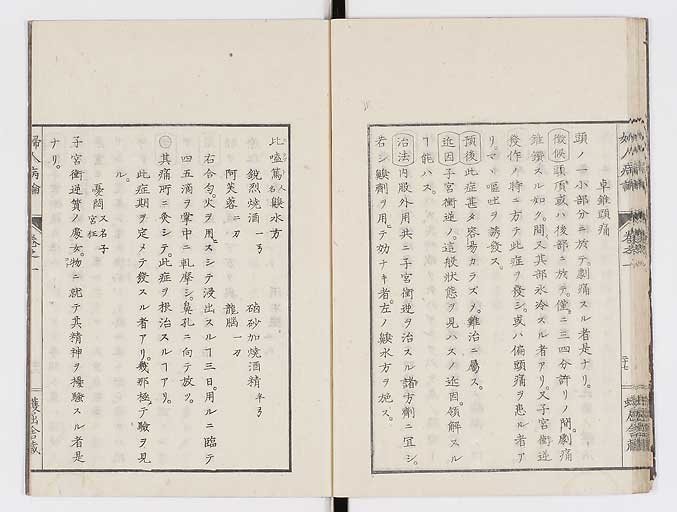 卓錐頭痛
頭ノ一小部分ニ於テ。劇痛スル者是ナリ。
徴候 頭頂或ハ後部ニ於テ。僅ニ三四分許リノ間。劇痛
錐鑽スル如ク。間又其部氷冷スル者アリ。又子宮衝逆
發作ノ時ニ方テ此症ヲ發シ。或ハ偏頭痛ヲ患ル者ア
リ。マヽ嘔吐ヲ誘發ス。
預後 此症甚タ容易カラズノ。難治ニ屬ス。
近因 子宮衝逆ノ。這般状態ヲ見ハスノ近因。領解スル
ヿ能ハス。
治法 内服外用共ニ子宮衝逆ヲ治スル諸方劑ニ宜シ。
若シ嗅劑ヲ用テ効ナキ者。左ノ嗅水方ヲ施ス。
比嗑篤人名嗅水方
鋭烈焼酒一弓 硇砂加焼酒精半弓
阿芙蓉二刀 龍腦一刀
右合匀。火ヲ用スシテ浸出スルヿ三日。用ルニ臨テ
四五滴ヲ掌中ニ軋摩シ。鼻孔ニ向テ放ツ。
其痛所ニ灸シテ。此症ヲ根治スルヿアリ。
此症期ヲ定メテ發スル者アリ。幾那極テ驗ヲ見
ル。
憂悶 又名子宮狂
子宮衝逆質ノ處女。物ニ就テ其精神ヲ擾騷スル者是
ナリ。
婦人病論
卷之一